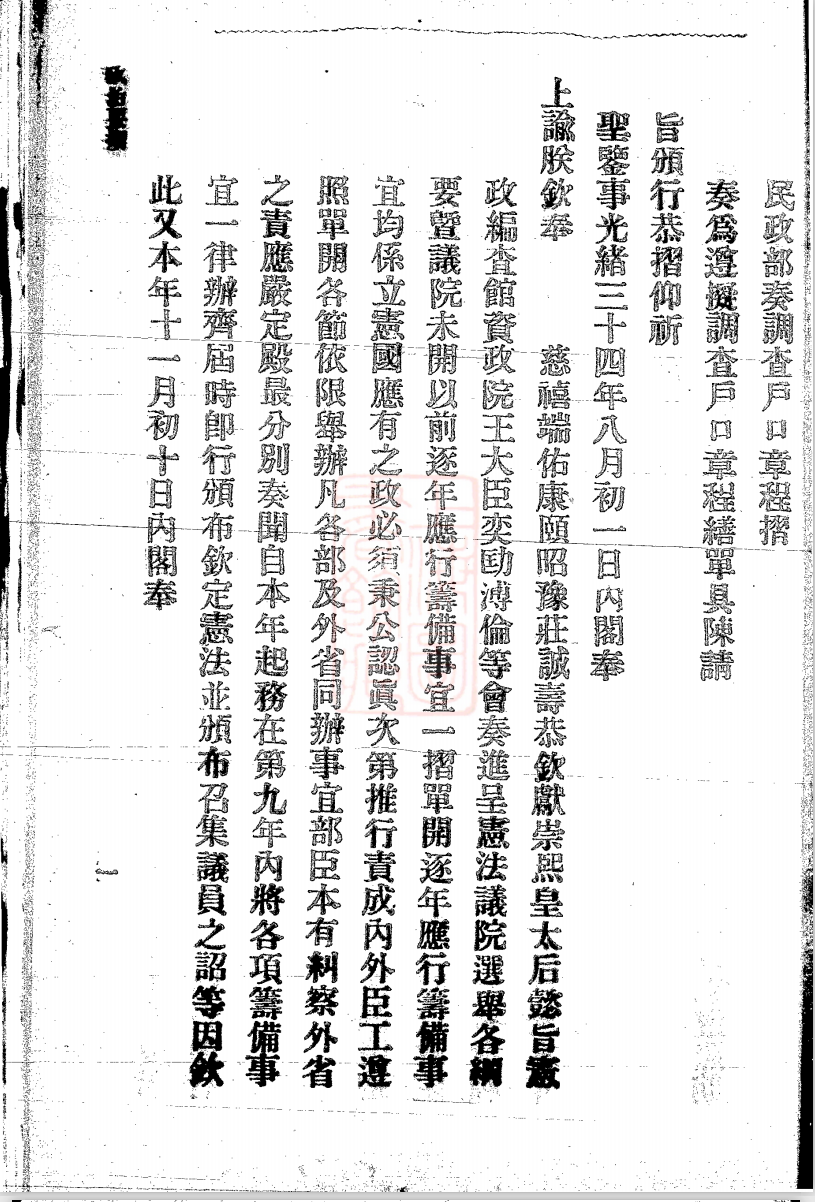 民政部奏調查戶口章程摺
奏爲遵擬調查戶口章程繕單具陳請
旨頒行恭摺仰祈
聖鑒事光緒三十四年八月初一日內閣奉
上諭朕欽奉 慈禧端佑康頤昭豫莊誠壽恭欽獻崇熙皇太后懿旨憲
政編查館資政院王大臣奕劻溥倫等會奏進呈憲法議院選舉各綱
要暨議院未開以前逐年應行籌備事宜一摺單開逐年應行籌備事
宜均係立憲國應有之政必須秉公認眞次第推行責成內外臣工遵
照單開各節依限舉辦凡各部及外省同辦事宜部臣本有糾察外省
之責應嚴定殿最分別奏聞自本年起務在第九年內將各項籌備事
宜一律辦齊屆時卽行頒布欽定憲法並頒布召集議員之詔等因欽
此又本年十一月初十日內閣奉
一